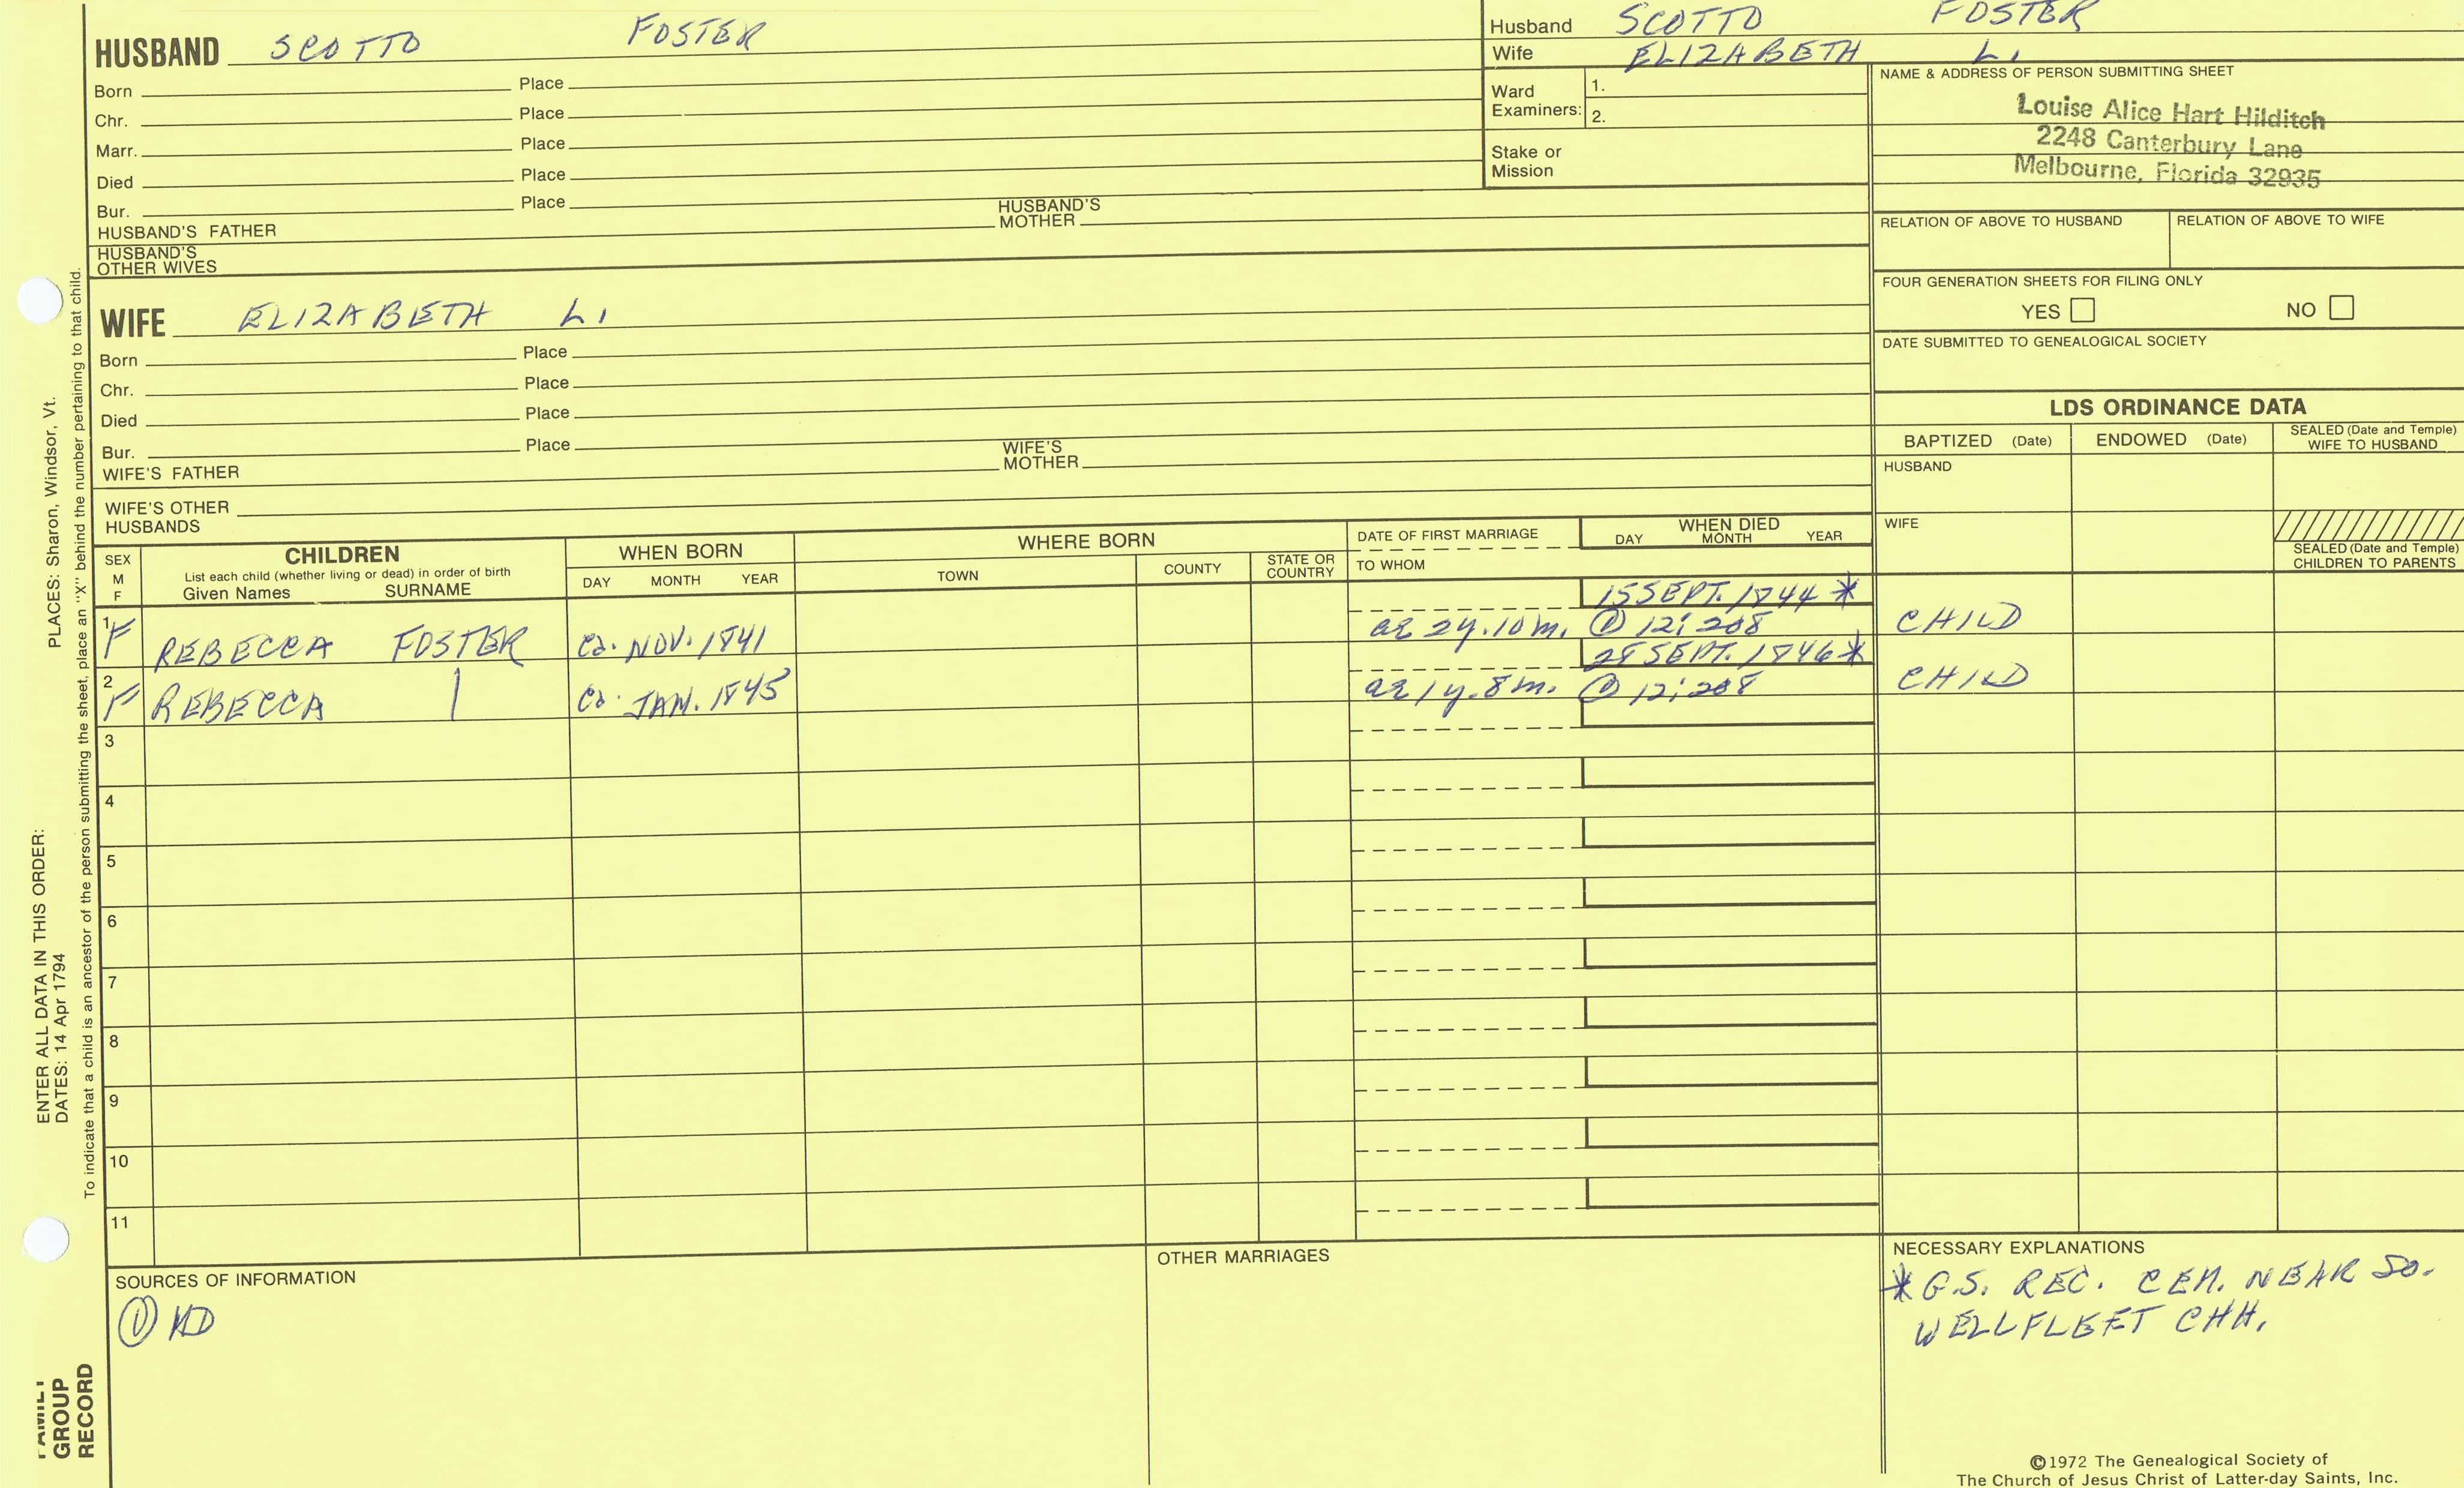 HUSBAND SCOTTO FOSTER
Born Place
Chr. Place
Marr. Place
Died Place
Bur. Place
HUSBAND'S FATHER HUSBAND'S MOTHER
HUSBAND'S OTHER WIVES
WIFE ELIZABETH L.
Born Place
Chr. Place
Died Place
Bur. Place
WIFE'S FATHER WIFE'S MOTHER
WIFE'S OTHER HUSBANDS
Husband SCOTTO FOSTER
Wife ELIZABETH L.
Ward Examiners: 1.
2.
Stake or Mission
NAME & ADDRESS OF PERSON SUBMITTING SHEET
Louise Alice Hart Hilditch
2248 Canterbury Lane
Melbourne, Florida 32935
RELATION OF ABOVE TO HUSBAND RELATION OF ABOVE TO WIFE
FOUR GENERATION SHEETS FOR FILING ONLY
YES NO
DATE SUBMITTED TO GENEALOGICAL SOCIETY
LDS ORDINANCE DATA
BAPTIZED (Date) ENDOWED (Date) SEALED (Date and Temple) WIFE TO HUSBAND
HUSBAND
WIFE
SEALED (Date and Temple) CHILDREN TO PARENTS
SEX M F CHILDREN WHEN BORN WHERE BORN DATE OF FIRST MARRIAGE WHEN DIED
List each child (whether living or dead) in order of birth
Given Names SURNAME DAY MONTH YEAR TOWN COUNTY STATE OR COUNTRY TO WHOM DAY MONTH YEAR
15 SEPT. 1844 *
1 F REBECCA FOSTER Ca. NOV. 1841 ae 2y. 10 m. ① 12: 208 CHILD
28 SEPT. 1846 *
2 F REBECCA | Ca. JAN. 1845 ae 1y. 8 m. ① 12: 208 CHILD
3
4
5
6
7
8
9
10
11
SOURCES OF INFORMATION
① MD
OTHER MARRIAGES
NECESSARY EXPLANATIONS
* G.S. REC. CEM. NEAR SO.
WELLFLEET CHH.
©1972 The Genealogical Society of
The Church of Jesus Christ of Latter-day Saints, Inc.
ENTER ALL DATA IN THIS ORDER:
DATES: 14 Apr 1794 PLACES: Sharon, Windsor, Vt.
To indicate that a child is an ancestor of the person submitting the sheet, place an "X" behind the number pertaining to that child.
FAMILY
GROUP
RECORD